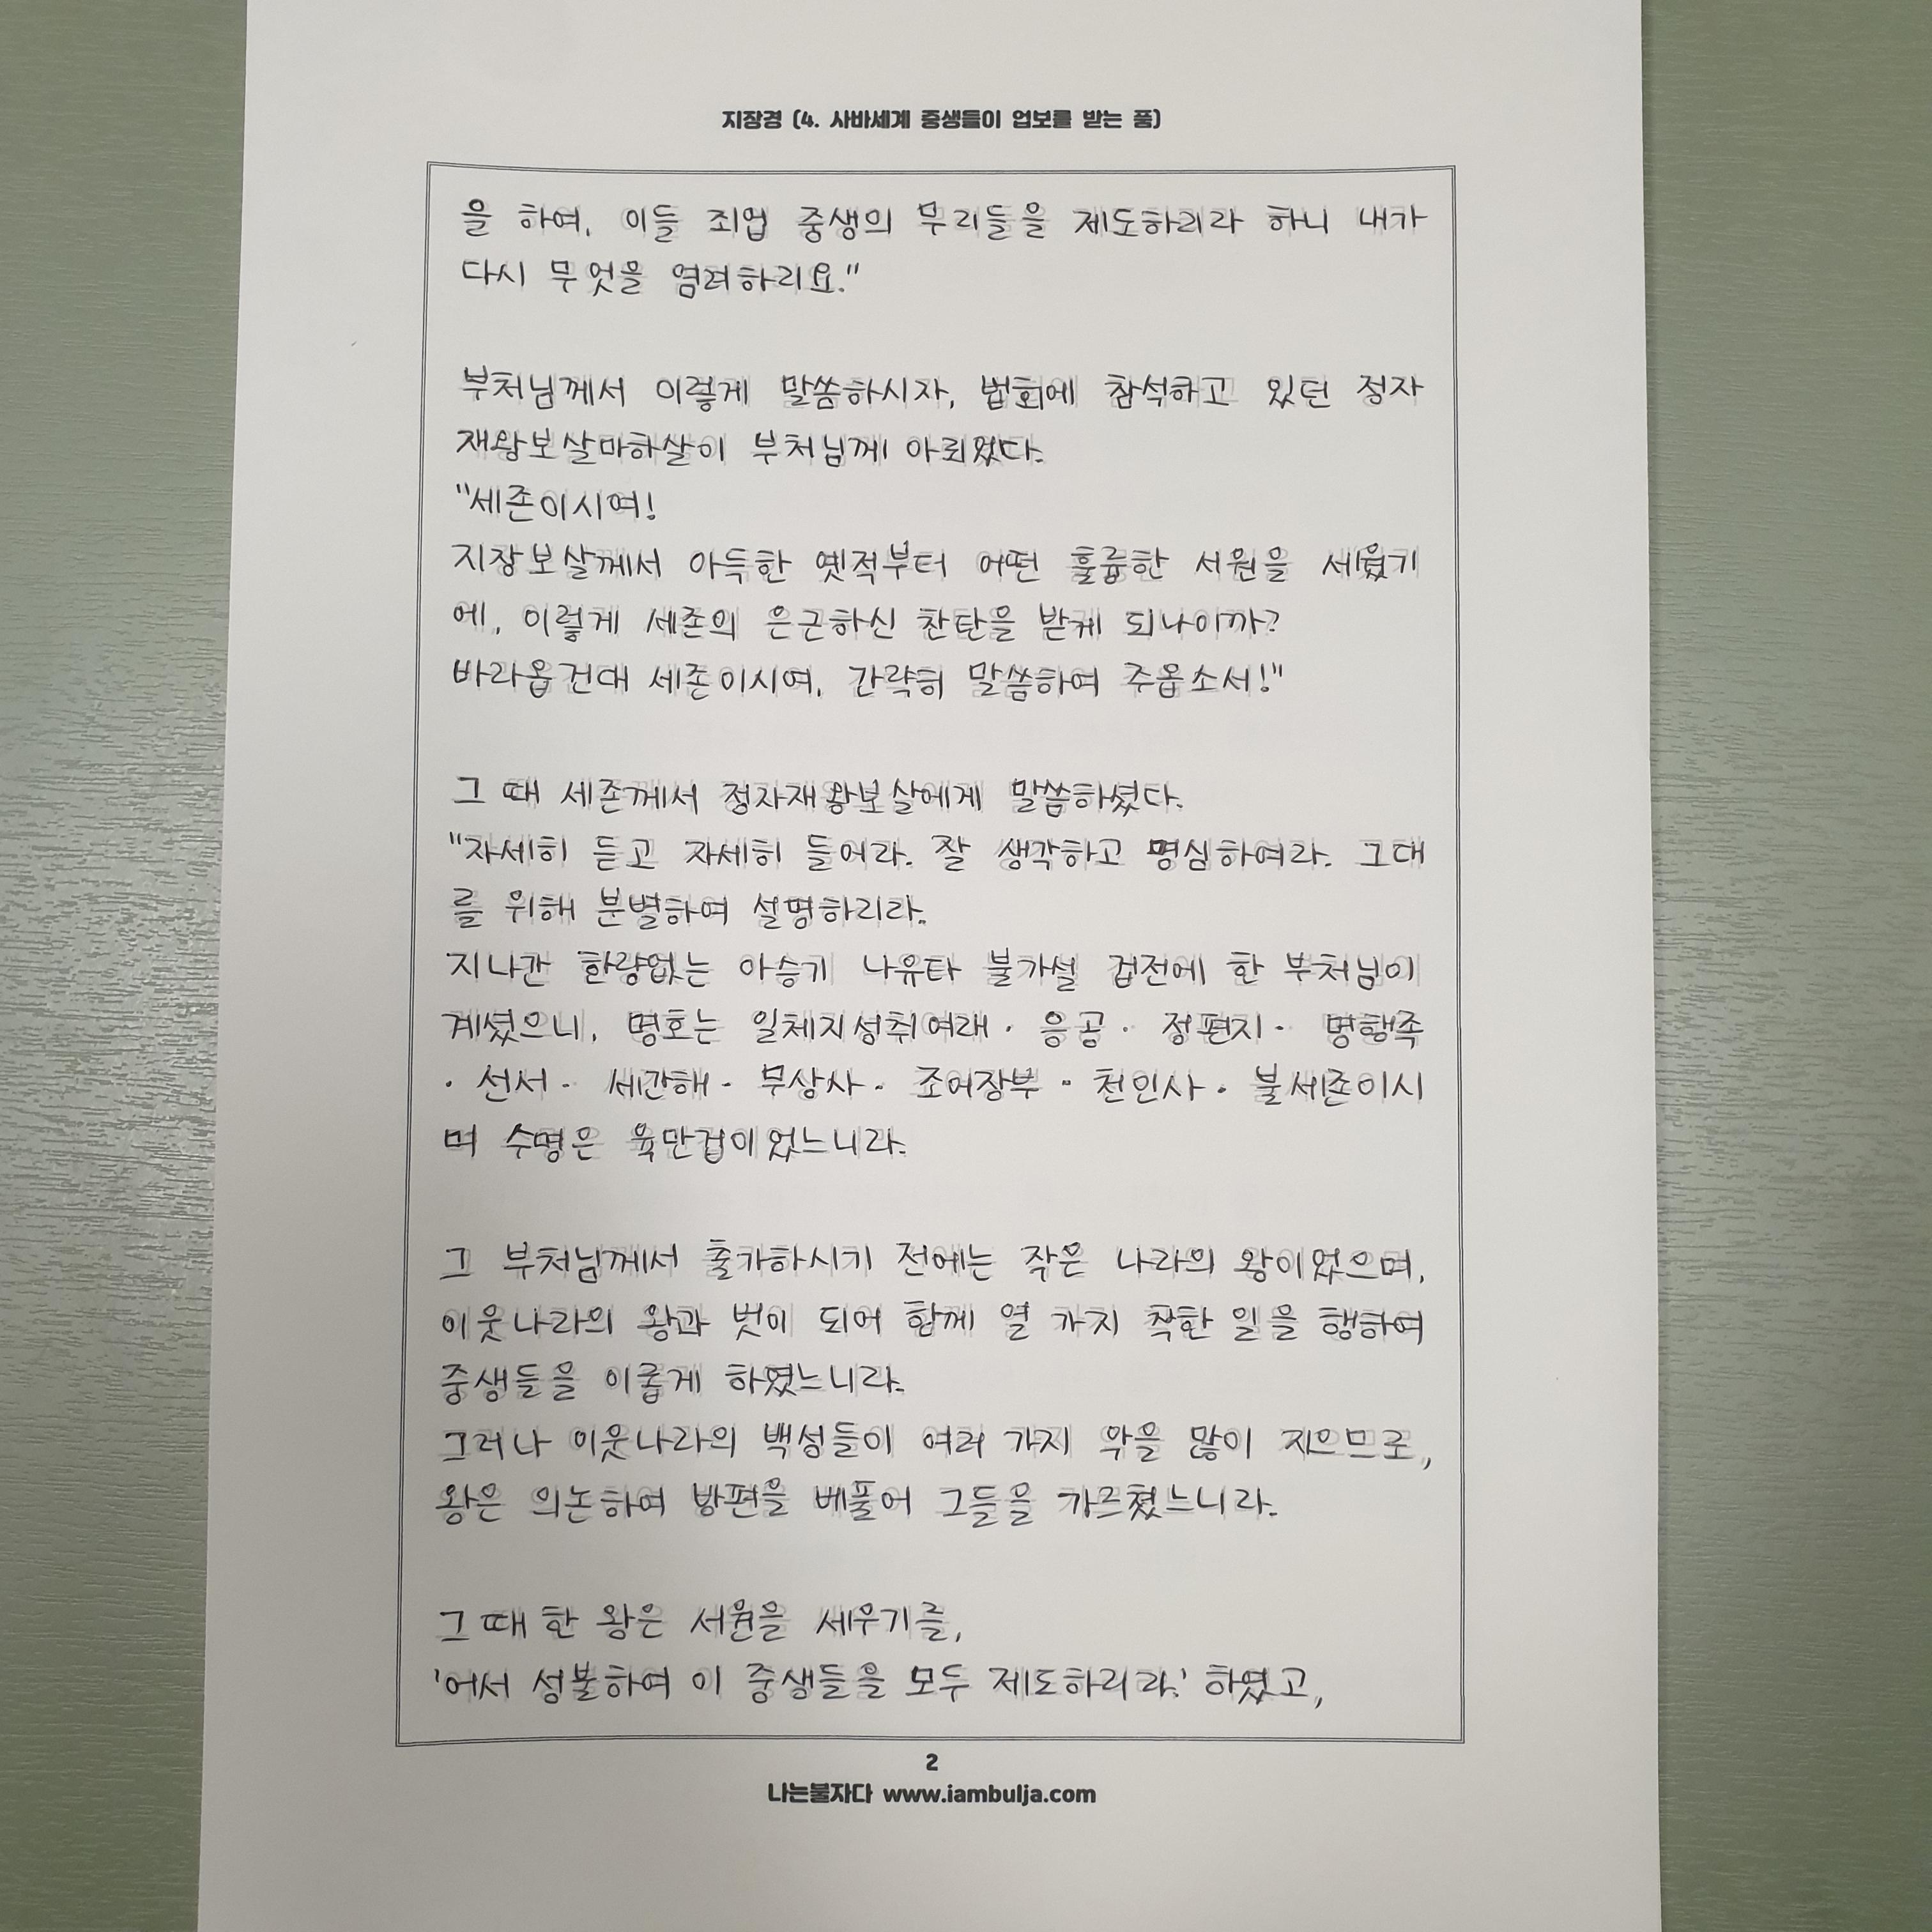 지장경 (4. 사바세계 중생들이 업보를 받는 품)
을 하여, 이들 죄업 중생의 무리들을 제도하리라 하니 내가
다시 무엇을 염려하리요."
부처님께서 이렇게 말씀하시자, 법회에 참석하고 있던 정자
재왕보살마하살이 부처님께 아뢰었다.
"세존이시여!
지장보살께서 아득한 옛적부터 어떤 훌륭한 서원을 세웠기
에, 이렇게 세존의 은근하신 찬탄을 받게 되나이까?
바라옵건대 세존이시여, 간략히 말씀하여 주옵소서!"
그 때 세존께서 정자재왕보살에게 말씀하셨다.
"자세히 듣고 자세히 들어라. 잘 생각하고 명심하여라. 그대
를 위해 분별하여 설명하리라.
지나간 한량없는 아승기 나유타 불가설 겁전에 한 부처님이
계셨으니, 명호는 일체지성취여래· 응공· 정편지· 명행족
· 선서· 세간해· 무상사· 조어장부· 천인사· 불세존이시
며 수명은 육만겁이었느니라.
그 부처님께서 출가하시기 전에는 작은 나라의 왕이었으며,
이웃나라의 왕과 벗이 되어 함께 열 가지 착한 일을 행하여
중생들을 이롭게 하였느니라.
그러나 이웃나라의 백성들이 여러 가지 악을 많이 지으므로,
왕은 의논하여 방편을 베풀어 그들을 가르쳤느니라.
그 때 한 왕은 서원을 세우기를,
'어서 성불하여 이 중생들을 모두 제도하리라.' 하였고,
2
나는불자다 www.iambulja.com